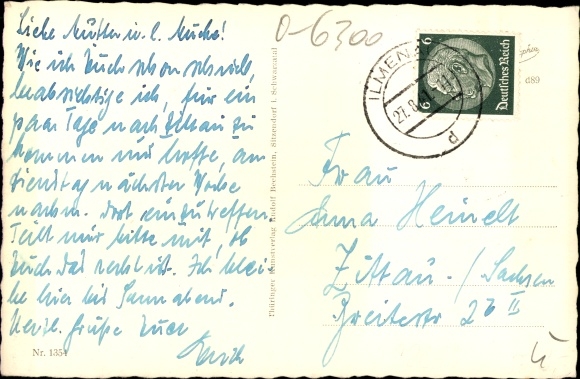 Liebe Mutter u. l. Mucke!
Wie ich Euch schon schrieb,
beabsichtige ich, für ein
paar Tage nach Zittau zu
kommen und hoffe, am
Dienstag nächster Woche
nachm. dort einzutreffen.
Teilt mir bitte mit, ob
Euch das recht ist. Ich blei-
be hier bis Sonnabend.
Herzl. Grüße Euer
Nr. 1354
Thüringer Kunstverlag Rudolf Bechstein, Sitzendorf i. Schwarzatal
0-6300
ILMENAU
27.8.
d
6 6
Deutsches Reich
689
Frau
Anna Heinelt
Zittau-/Sachsen
Breitestr 26 II